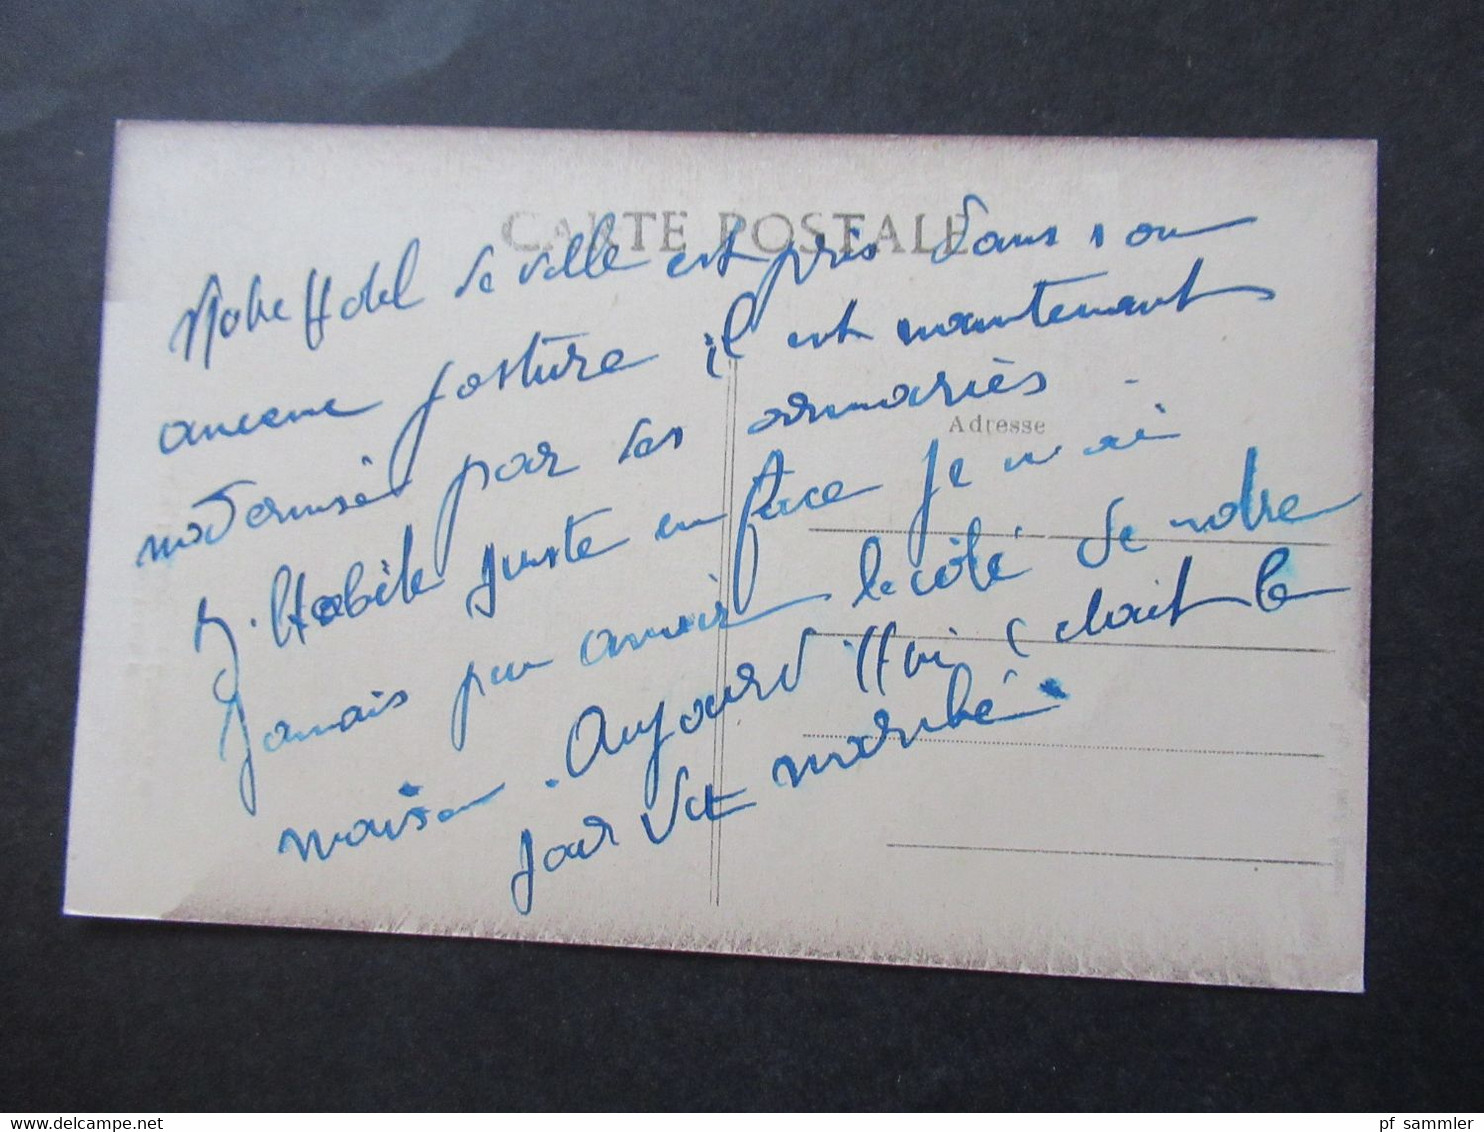 CARTE POSTALE
Notre Hotel de ville est pris dans son
ancene posture il est maintenant
modernisé par les armariès
J. Habite juste en face Je n ai
Adresse
Jamais pu avoir le côté de notre
maison. Aujourd'Hui c etait le
jour du marché
delcampe.net
pf_sammler